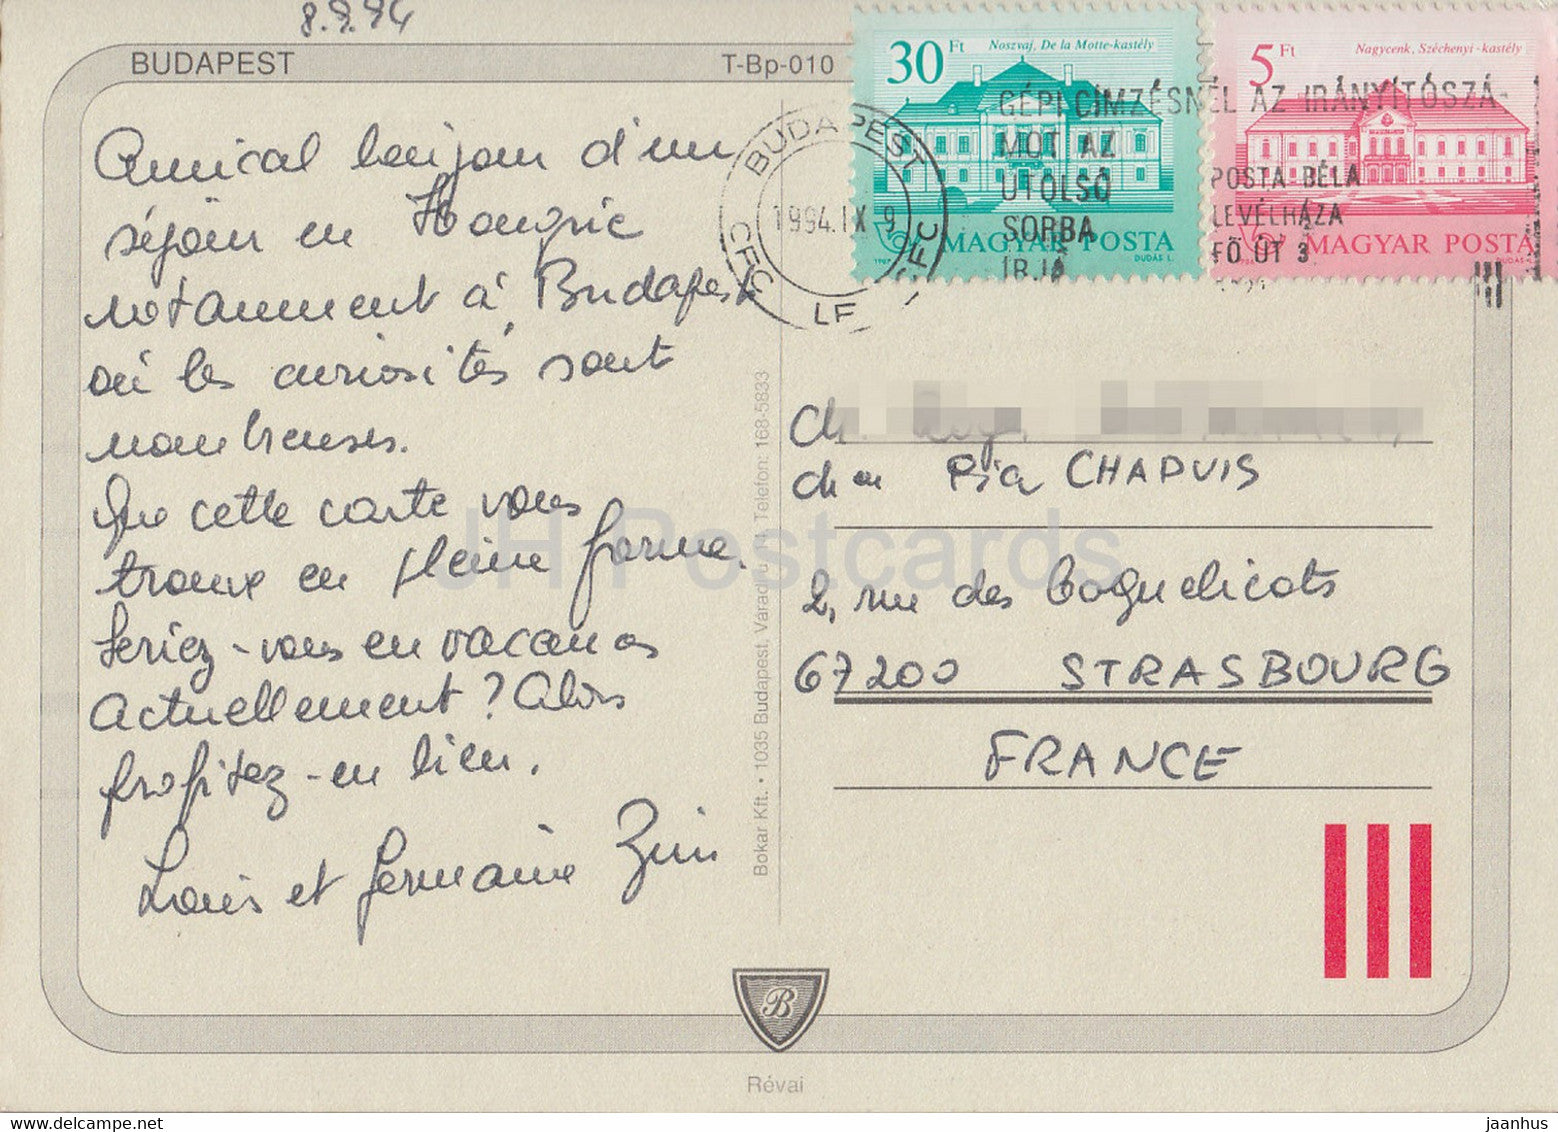 8.9.94
BUDAPEST
T-Bp-010
30 Ft
Noszvaj, De la Motte-kastély
MAGYAR POSTA
1987
DUDÁS L.
5 Ft
Nagycenk, Széchenyi-kastély
MAGYAR POSTA
BUDAPEST
1994. IX 9
CFC
LF
CFC
GÉPI CÍMZÉSNÉL AZ IRÁNYÍTÓSZÁ-
MOT AZ
UTOLSÓ
SORBA
ÍRJA
POSTA BÉLA
LEVÉLHÁZA
FŐ ÚT 3
Amical bonjour d'un
séjour en Hongrie
notamment à Budapest
où les curiosités sont
nombreuses.
Que cette carte vous
trouve en pleine forme.
Seriez-vous en vacances
actuellement ? Alors
profitez-en bien.
Louis et Germaine
Bokar Kft. • 1035 Budapest, Váradi u. Telefon: 168-5833
Pia CHAPUIS
2, rue des Coquelicots
67200 STRASBOURG
FRANCE
JH Postcards
B
Révai
www.jaanhus.com
jaanhus